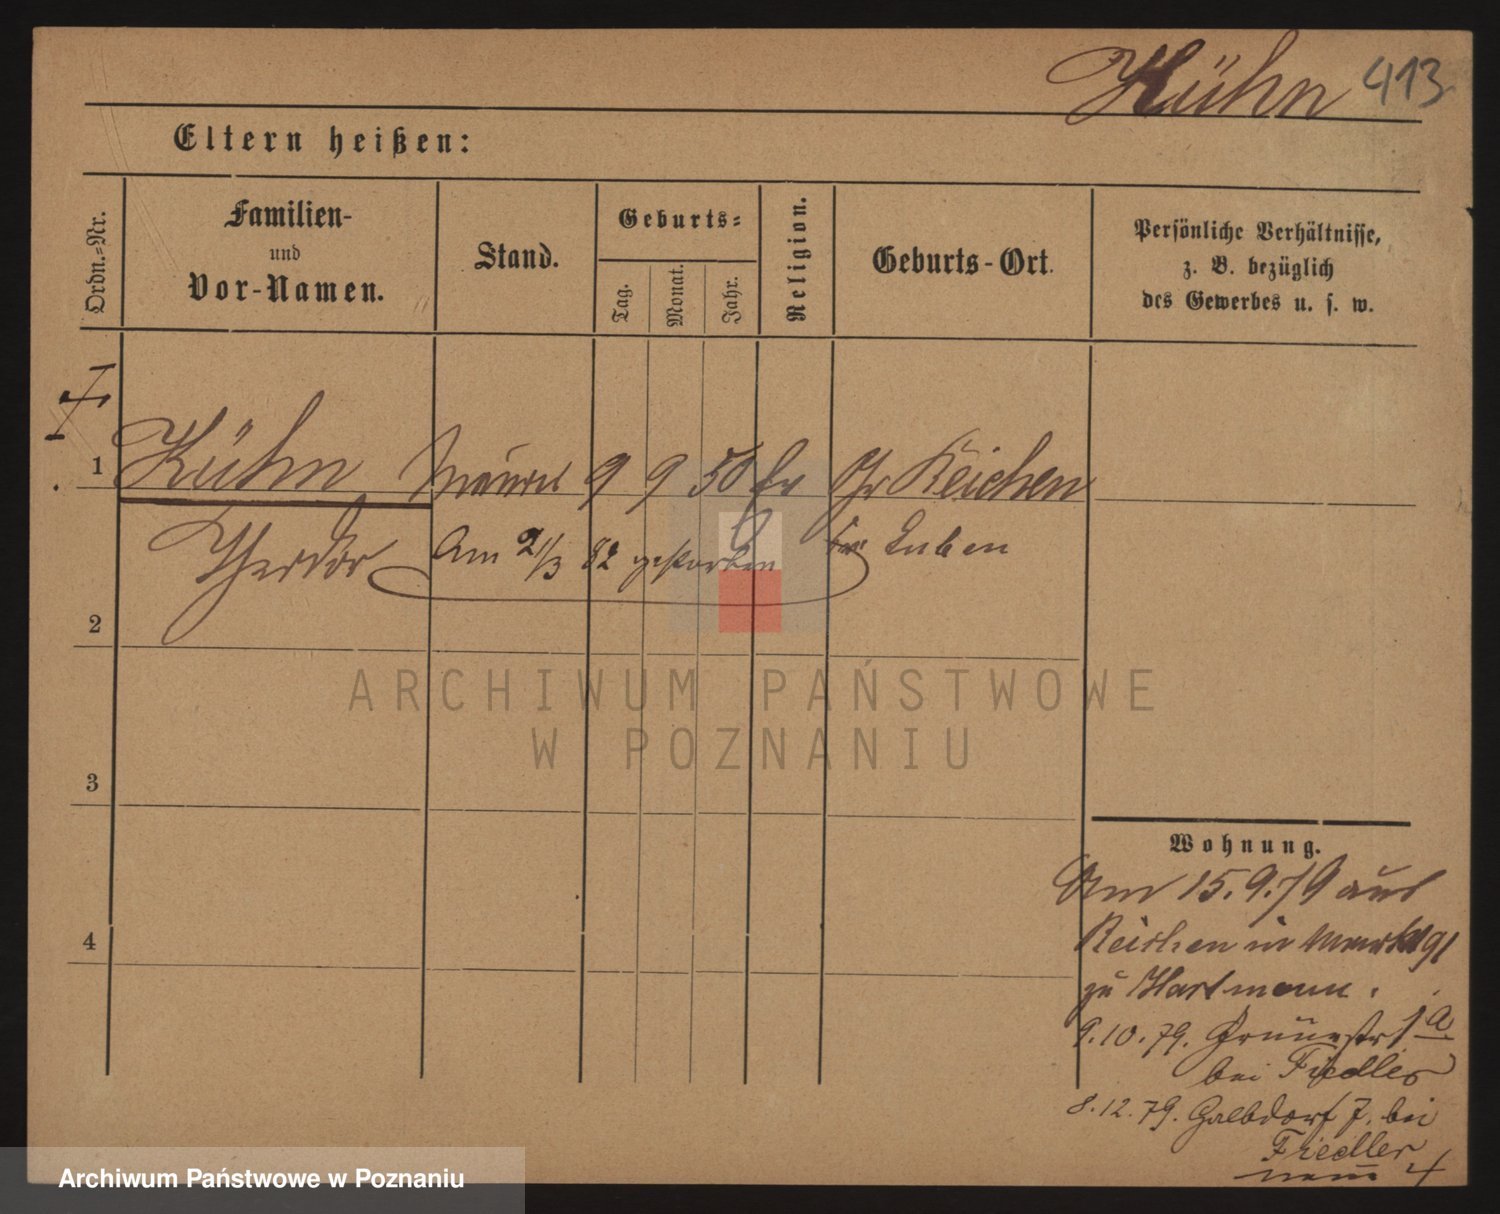 Kühn 413
Eltern heißen:
Ordn.-Nr.
Familien-
und
Vor-Namen.
Stand.
Geburts-
Tag.
Monat.
Jahr.
Religion.
Geburts-Ort.
Persönliche Verhältnisse,
z. B. bezüglich
des Gewerbes u. s. w.
1 Kühn Maurer 9 9 50 Ev Gr Reichen
Theodor Am 21/3 82 gestorben Luben
2
3
4
Wohnung.
Am 15.9.79 aus
Reichen in Markt 91
zu Hartmann.
9.10.79. Grünestr 1a
bei Fiedler
8.12.79. Halbdorf 7. bei
Fiedler
ARCHIWUM PAŃSTWOWE
W POZNANIU
Archiwum Państwowe w Poznaniu